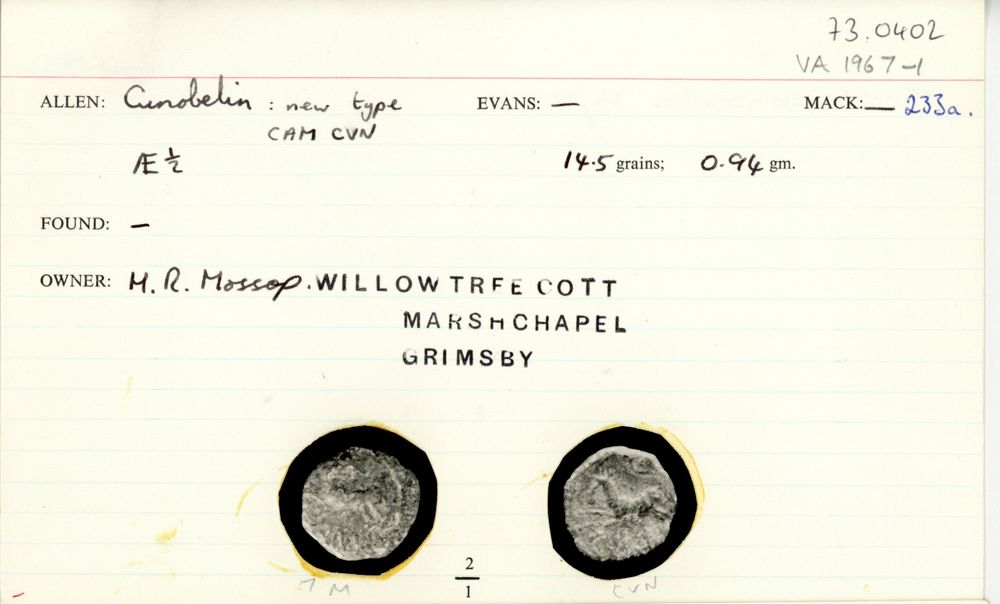 73.0402
VA 1967-1
ALLEN: Cunobelin : new type EVANS: — MACK: — 233a.
CAM CVN
Æ ½ 14.5 grains; 0.94 gm.
FOUND: —
OWNER: H. R. Mossop. WILLOW TREE COTT
MARSHCHAPEL
GRIMSBY
2
1
M CVN